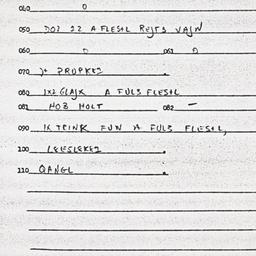 040 0
050 DOZ 22 A FLESTL REJTS VAJN
060 0 061 0
070 PROPKEZ .
080 1X2 GLAJX A FULS FLESTL
081 HOB HOLT 082 –
090 IX TRINK FUN A FULS FLESTL,
100 LEESLEKEZ .
110 QANGL .